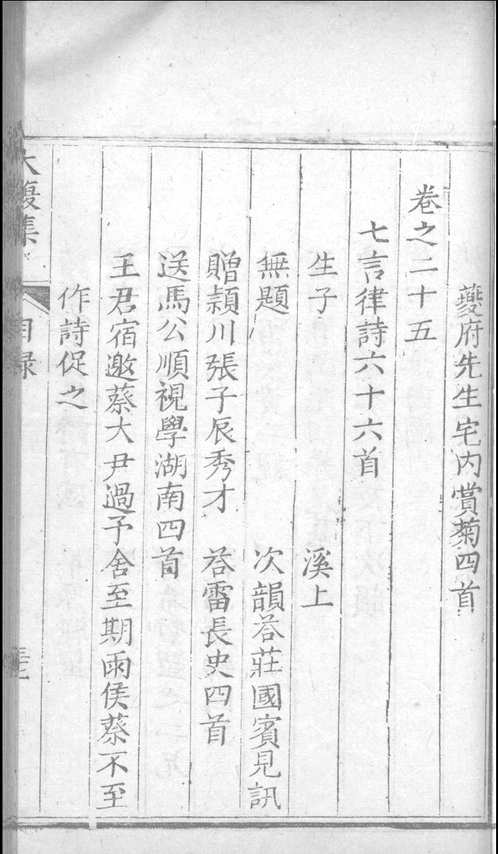 夔府先生宅内賞菊四首
卷之二十五
七言律詩六十六首
生子 溪上
無題 次韻荅莊國賓見訊
贈潁川張子辰秀才 荅雷長史四首
送馬公順視學湖南四首
王君宿邀蔡大尹過予舍至期雨侯蔡不至
作詩促之
大復集 目録